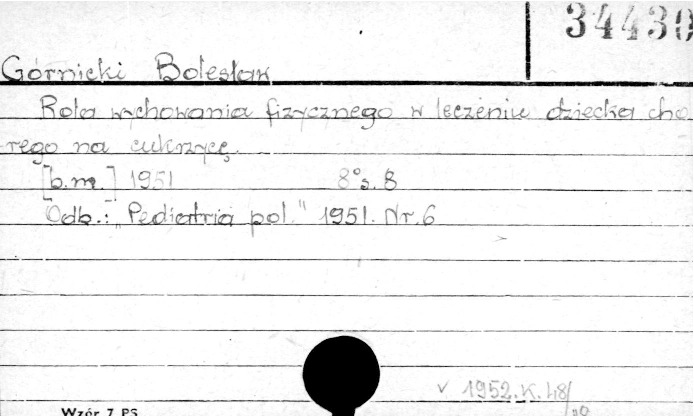 34430
Górnicki Bolesław
Rola wychowania fizycznego w leczeniu dziecka cho
rego na cukrzycę.
[b.m.] 1951 8° s. 8
Odb.: „Pediatria pol." 1951. Nr. 6
v 1952. K. 48/
Wzór 7 PS